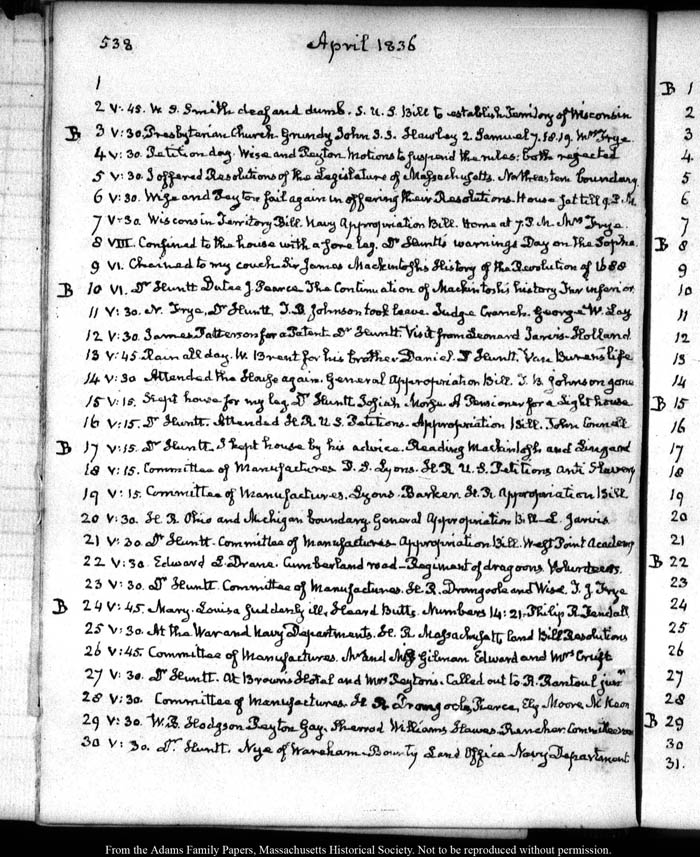 538 April 1836
1
2 V:45. W. S. Smith deaf and dumb. S. U. S. Bill to establish Territory of Wisconsin
B 3 V:30. Presbyterian Church. Grundy John S. S. Hawley 2. Samuel 7.18.19. Mrs Frye
4 V:30. Petition day. Wise and Peyton Motions to suspend the rules. both rejected
5 V:30. I offered Resolutions of the Legislature of Massachusetts. Northeastern boundary
6 V:30. Wise and Peyton fail again in offering their Resolutions. House sat till 9. P.M.
7 V:30. Wisconsin Territory Bill. Navy Appropriation Bill. Home at 7. P.M. Mrs Frye.
8 VIII. Confined to the house with a sore leg. Dr Huntt's warnings Day on the Sopha
9 VI. Chained to my couch. Sir James Mackintosh's History of the Revolution of 1688
B 10 VI. Dr Huntt Dutee J. Pearce. The Continuation of Mackintosh's history far inferior
11 V:30. N. Frye, Dr Huntt, J. B. Johnson took leave. Judge Cranch. George W. Lay
12 V:30. James Patterson for a Patent. Dr Huntt. Visit from Leonard Jarvis. Holland
13 V:45 Rain all day. W. Brent for his brother Daniel. Huntt. Van Buren's life
14 V:30 Attended the House again. General Appropriation Bill. J. B. Johnson gone
15 V:15. Kept house for my leg. Dr Huntt Josiah Morse. A Pensioner for a Light house
16 V:15. Dr Huntt. Attended H. R. U. S. Petitions. Appropriation Bill. John Connell
B 17 V:15. Dr Huntt. I kept house by his advice. Reading Mackintosh and Lingard
18 V:15. Committee of Manufactures Lyons. H. R. U. S. Petitions anti Slavery
19 V:15. Committee of Manufactures. Lyons. Barker. H. R. Appropriation Bill
20 V:30. H. R. Ohio and Michigan boundary. General Appropriation Bill – L. Jarvis
21 V:30 Dr Huntt. Committee of Manufactures – Appropriation Bill. West Point Academy
22 V:30. Edward L. Drane. Cumberland road – Regiment of dragoons Volunteers.
23 V:30. Dr Huntt. Committee of Manufactures. H. R. Dromgoole and Wise. T. J. Frye
B 24 V:45. Mary-Louisa suddenly ill. Heard Butts. Numbers 14:21. Philip R. Fendall
25 V:30. At the War and Navy Departments. H. R. Massachusetts Land Bill Resolutions
26 V:45 Committee of Manufactures. Mr and Miss Gilman Edward and Mrs
27 V:30. Dr Huntt. At Brown's Hotel and Mrs Peyton's. Called out to R. Rantoul junr
28 V:30. Committee of Manufactures. H. R. Dromgoole, Pierce, Ely Moore McKeon
29 V:30. W. B. Hodgson Peyton Gay, Sherrod Williams Hawes. Rencher.
30 V:30. Dr Huntt. Nye of Wareham – Bounty Land Office Navy Department
B 1
2
3
4.
5
6
7
B 8
9
10
11
12
13
14
B 15
16
17
18
19
20
21
B 22
23
24
25
26
27
28
B 29
30
31.
From the Adams Family Papers, Massachusetts Historical Society. Not to be reproduced without permission.